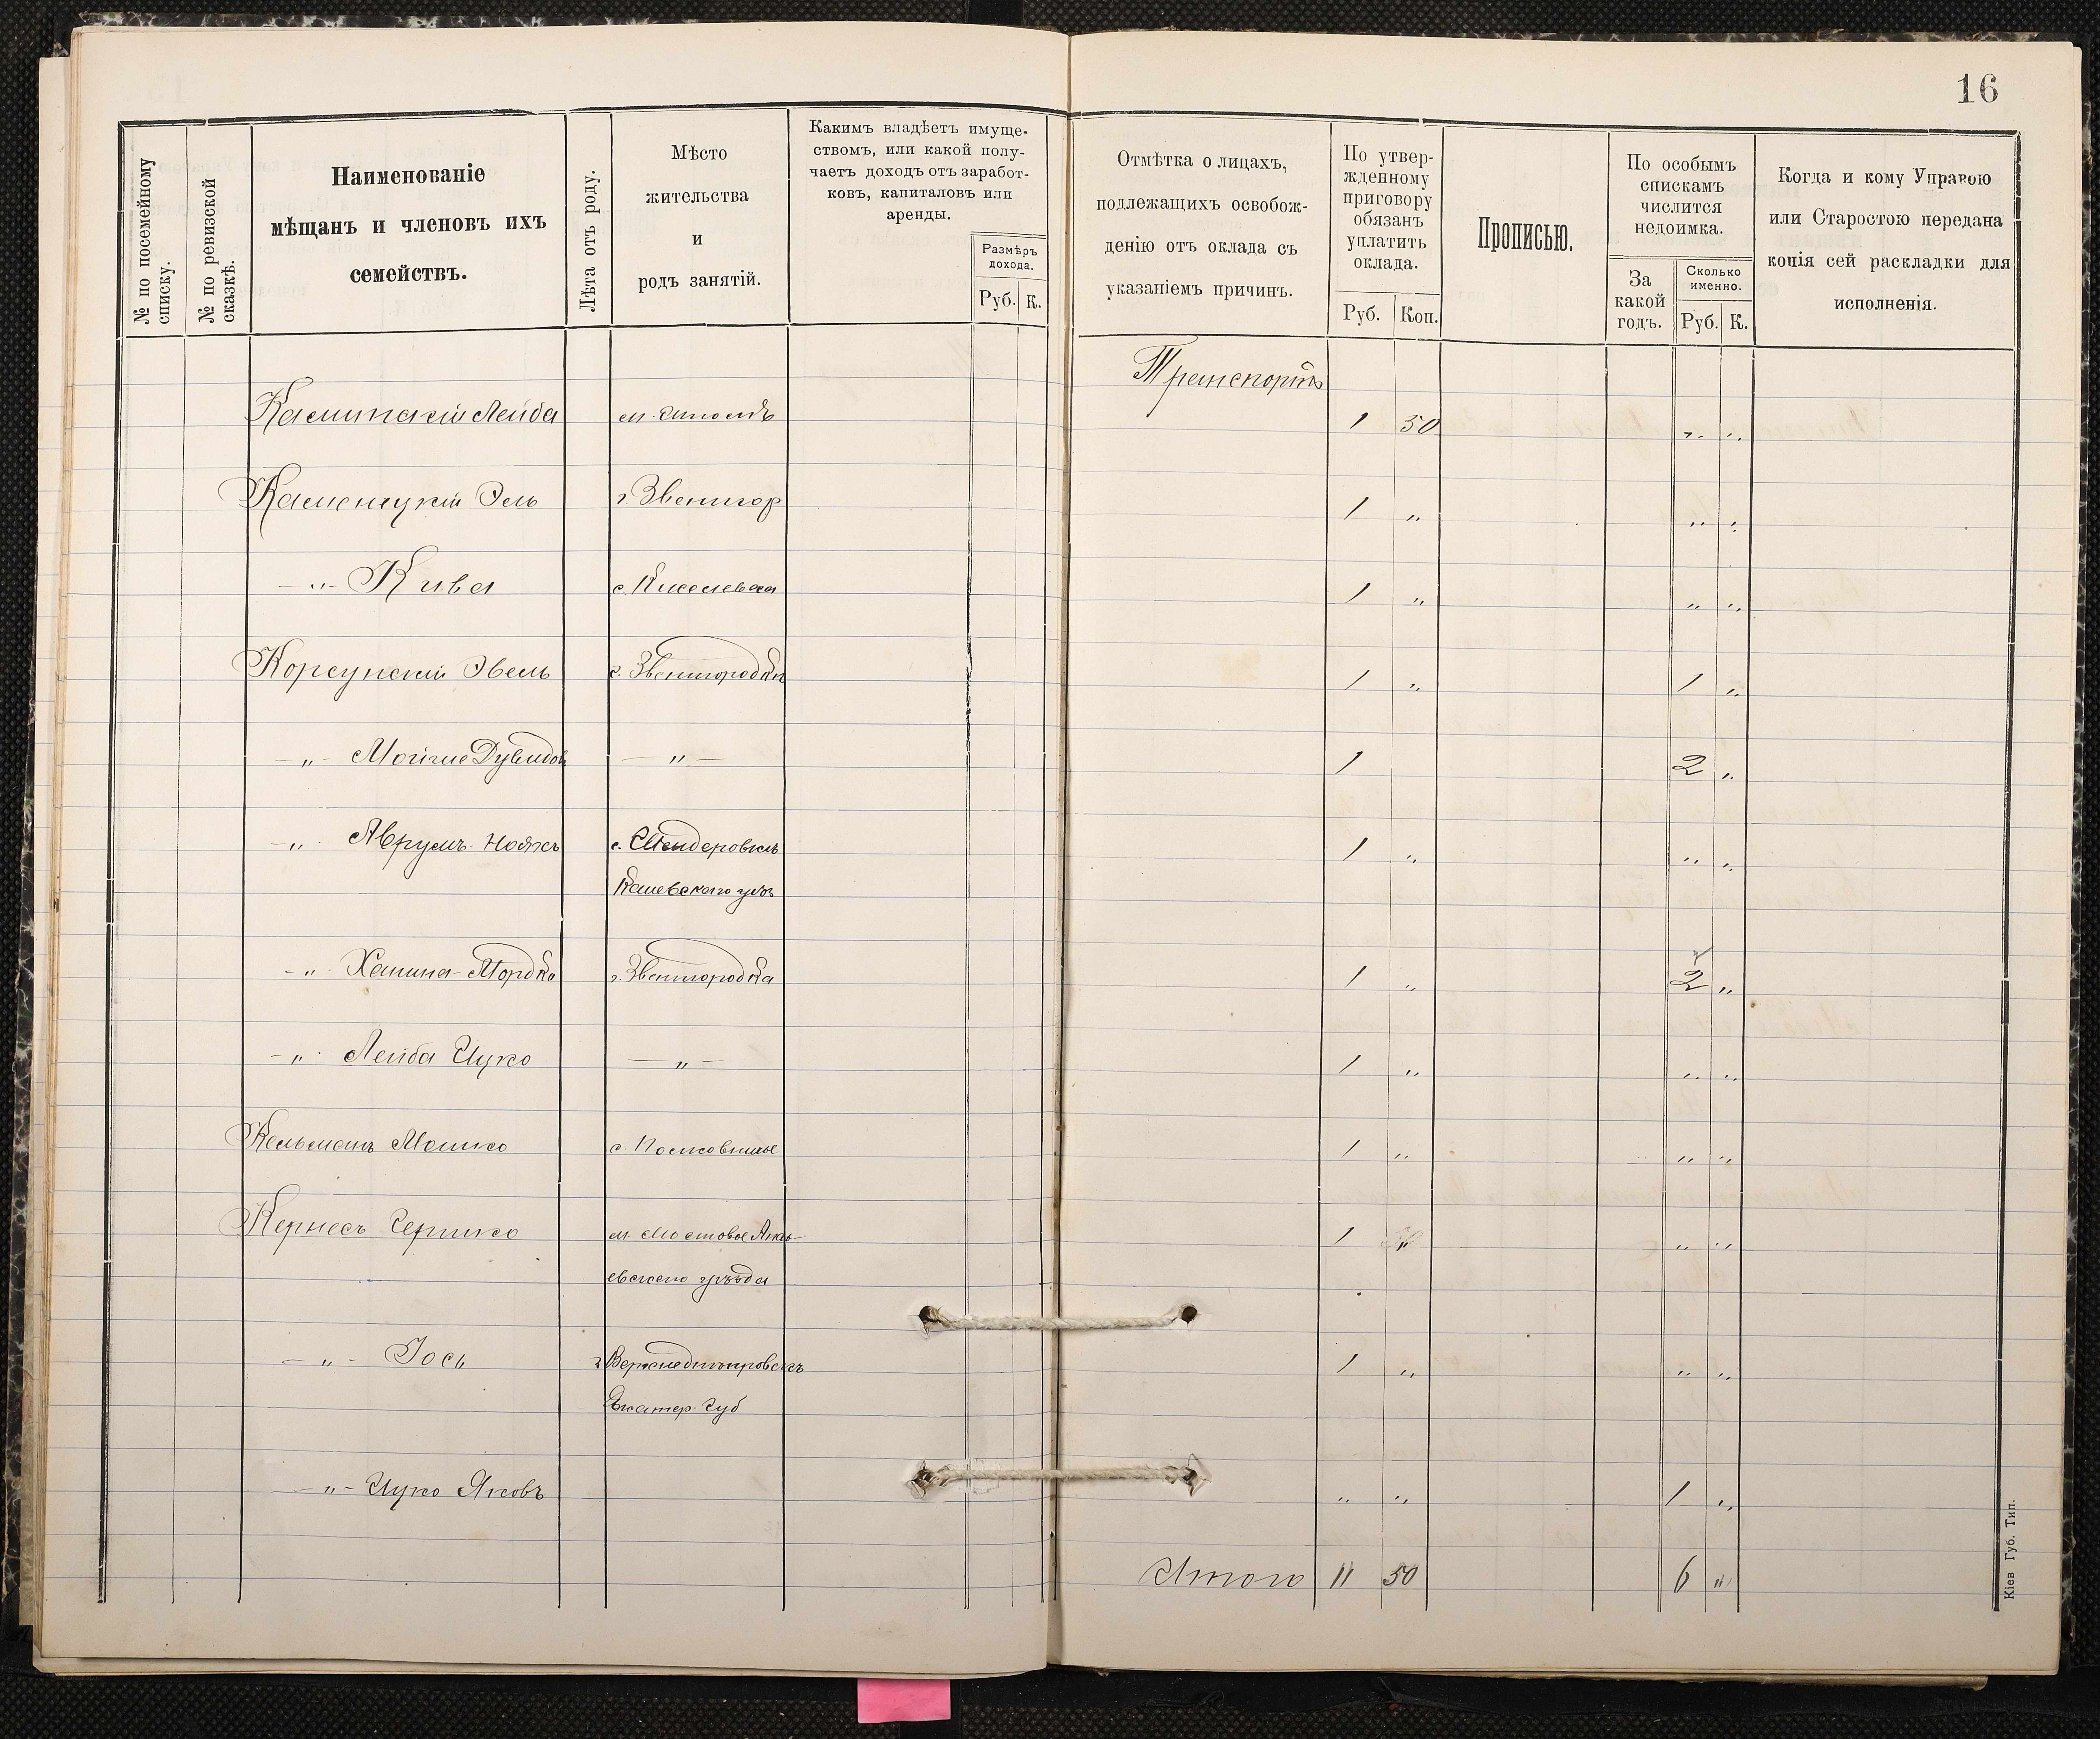 16
№ по посемейному списку.
№ по ревизской сказкѣ.
Наименованіе
мѣщанъ и членовъ ихъ
семействъ.
Лѣта отъ роду.
Мѣсто
жительства
и
родъ занятій.
Какимъ владѣетъ имуще-
ствомъ, или какой полу-
чаетъ доходъ отъ заработ-
ковъ, капиталовъ или
аренды.
Размѣръ
дохода.
Руб. К.
Отмѣтка о лицахъ,
подлежащихъ освобож-
денію отъ оклада съ
указаніемъ причинъ.
По утвер-
жденному
приговору
обязанъ
уплатить
оклада.
Руб. Коп.
Прописью.
По особымъ
спискамъ
числится
недоимка.
За
какой
годъ.
Сколько
именно.
Руб. К.
Когда и кому Управою
или Старостою передана
копія сей раскладки для
исполненія.
Транспортъ
Каминскій Лейба м. Шпола 1 50 „ „
Каменецкій Эль г. Звенигор 1 „ „ „
— „ — Кива с. Киселевка 1 „ „ „
Корсунскій Эвель г. Звенигородка 1 „ 1 „
— „ — Мойше Дувидов — „ — 1 2 „
— „ — Аврумъ с. Шендеровкѣ 1 „ „ „
Каневского уѣз
— „ — Ханина-Мордко г. Звенигородка 1 „ 2 „
— „ — Лейба Ицко — „ — 1 „ „ „
Кельманъ Мошко 1 „ „ „
Кернесъ Гершко м. Мостовое Анань- 1 „ „ „
евскаго уѣзда
— „ — Іось г. Верхнеднѣпровскъ 1 „ „ „
Екатер. Губ
— „ — Ицко Яковъ „ „ 1 „
Итого 11 50 6 „
Кіев Губ. Тип.